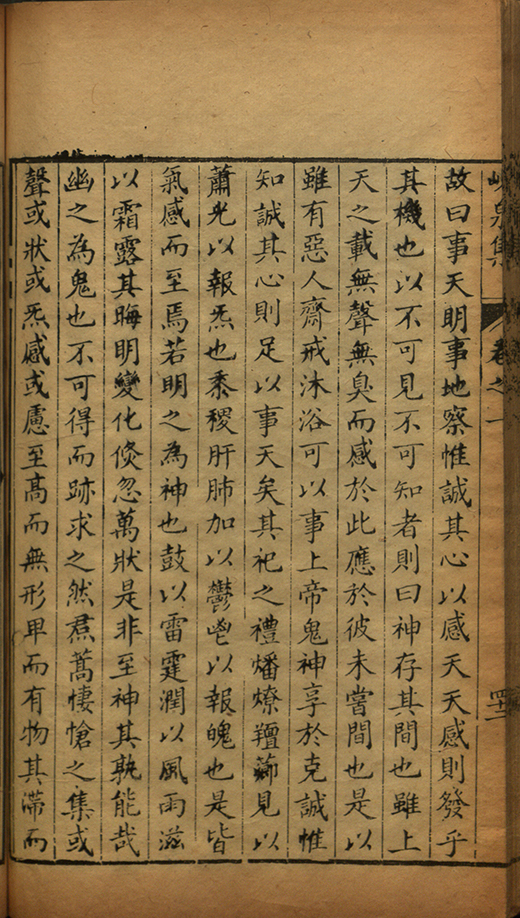 峴泉集 卷之一 四十二
故曰事天明事地察惟誠其心以感天天感則發乎
其機也以不可見不可知者則曰神存其間也雖上
天之載無聲無臭而感於此應於彼未嘗間也是以
雖有惡人齋戒沐浴可以事上帝鬼神享於克誠惟
知誠其心則足以事天矣其祀之禮燔燎羶薌見以
蕭光以報炁也黍稷肝肺加以鬱鬯以報魄也是皆
氣感而至焉若明之為神也鼓以雷霆潤以風雨滋
以霜露其晦明變化倐忽萬狀是非至神其孰能哉
幽之為鬼也不可得而跡求之然焄蒿悽愴之集或
聲或狀或炁感或慮至高而無形卑而有物其滯而